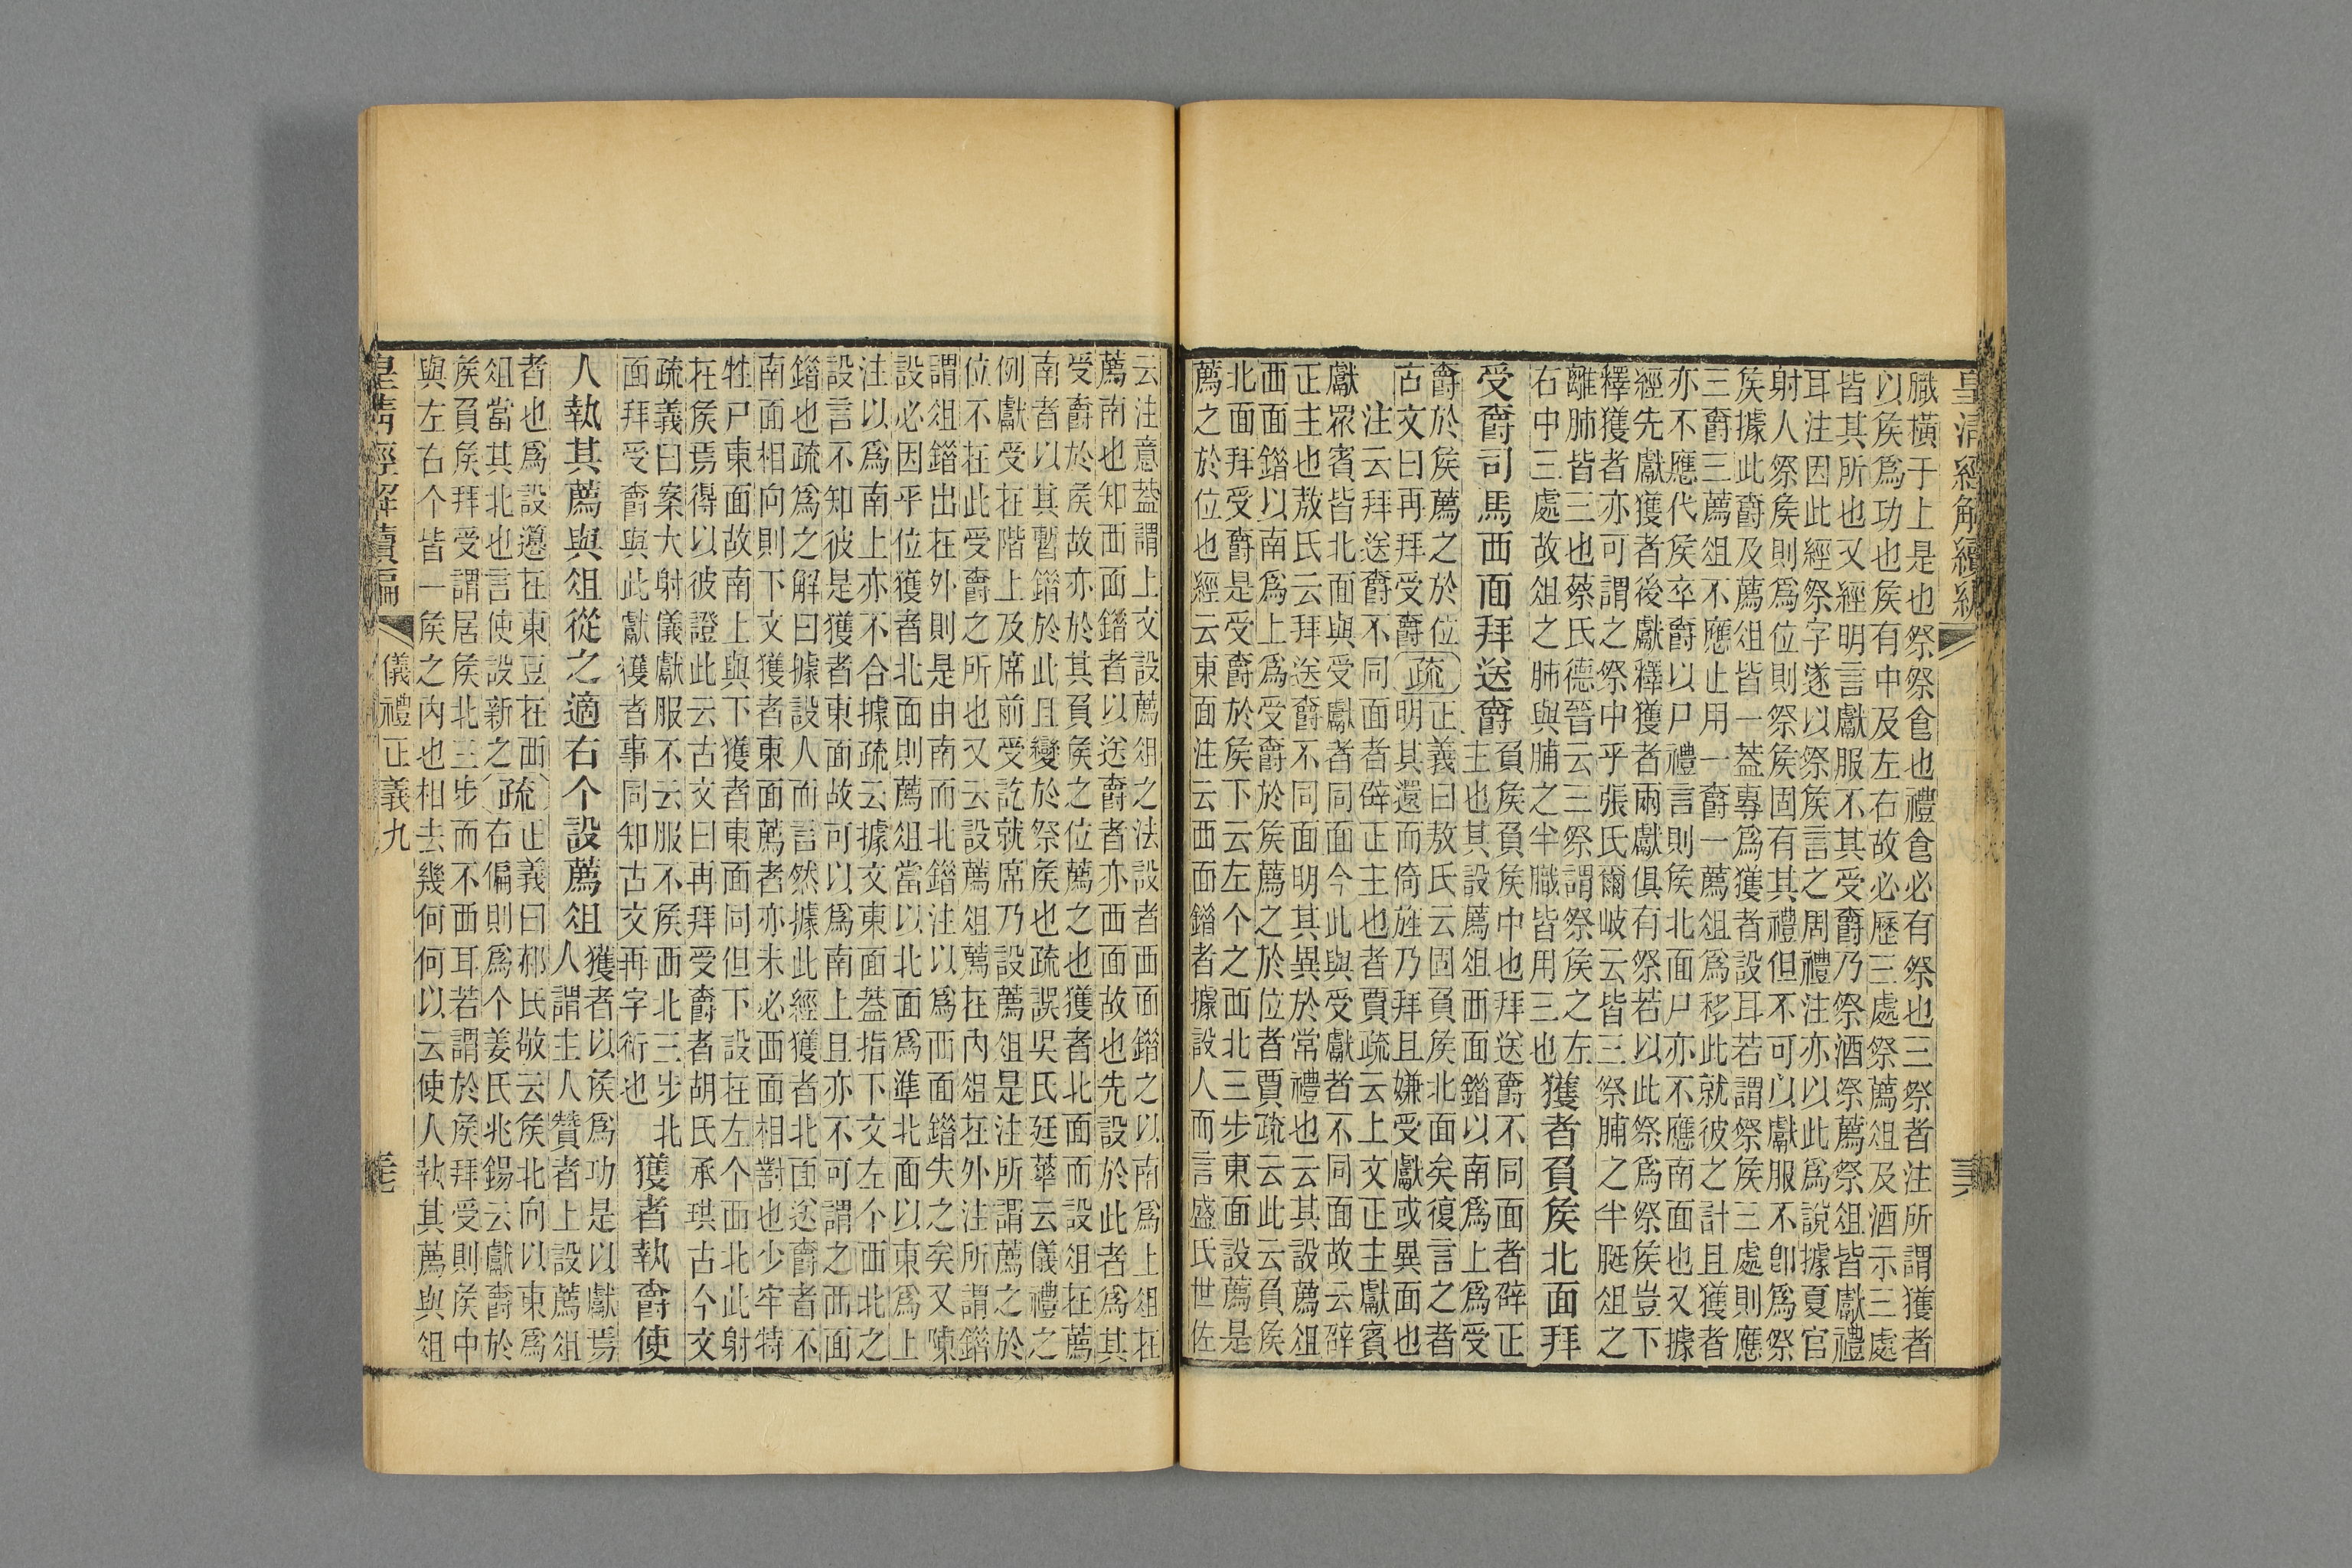 皇清經解續編
膱橫于上是也祭祭食也禮食必有祭也三祭者注所謂獲者
以矦爲功也矦有中及左右故必歷三處祭薦俎及酒示三處
皆其所也又經明言獻服不其受爵乃祭酒祭薦祭俎皆獻禮
耳注因此經祭字遂以祭矦言之周禮注亦以此爲說據夏官
射人祭矦則爲位則祭矦固有其禮但不可以獻服不卽爲祭
矦據此爵及薦俎皆一蓋專爲獲者設耳若謂祭矦三處則應
三爵三薦俎不應止用一爵一薦俎爲移此就彼之計且獲者
亦不應代矦卒爵以尸禮言則矦北面尸亦不應南面也又據
經先獻獲者後獻釋獲者兩獻俱有祭若以此祭爲祭矦豈下
釋獲者亦可謂之祭中乎張氏爾岐云皆三祭脯之半脡俎之
離肺皆三也蔡氏德晉云三祭謂祭矦之左
右中三處故俎之肺與脯之半膱皆用三也
獲者負矦北面拜
受爵司馬西面拜送爵
負矦負矦中也拜送爵不同面者辟正
主也其設薦俎西面錯以南爲上爲受
爵於矦薦之於位
古文曰再拜受爵
疏
正義曰敖氏云固負矦北面矣復言之者
明其還而倚旌乃拜且嫌受獻或異面也
注云拜送爵不同面者辟正主也者賈疏云上文正主獻賓
獻眾賓皆北面與受獻者同面今此與受獻者不同面故云辟
正主也敖氏云拜送爵不同面明其異於常禮也云其設薦俎
西面錯以南爲上爲受爵於矦薦之於位者賈疏云此云負矦
北面拜受爵是受爵於矦下云左个之西北三步東面設薦是
薦之於位也經云東面注云西面錯者據設人而言盛氏世佐
云注意蓋謂上文設薦俎之法設者西面錯之以南爲上俎在
薦南也知西面錯者以送爵者亦西面故也先設於此者爲其
受爵於矦故亦於其負矦之位薦之也獲者北面而設俎在薦
南者以其暫錯於此且變於祭矦也疏誤吳氏廷華云儀禮之
例獻受在階上及席前受訖就席乃設薦俎是注所謂薦之於
位不在此受爵之所也又云設薦俎薦在內俎在外注所謂錯
謂俎錯出在外則是由南而北錯注以爲西面錯失之矣又陳
設必因平位獲者北面則薦俎當以北面爲準北面以東爲上
注以爲南上亦不合據疏云據文東面蓋指下文左个西北之
設言不知彼是獲者東面故可以爲南上且亦不可謂之西面
錯也疏爲之解曰據設人而言然據此經獲者北面送爵者不
南面相向則下文獲者東面薦者亦未必西面相對也少牢特
牲尸東面故南上與下獲者東面同但下設在左个西北此射
在矦焉得以彼證此云古文曰再拜受爵者胡氏承珙古今文
疏義曰案大射儀獻服不云服不矦西北三步北
面拜受爵與此獻獲者事同知古文再字衍也
獲者執爵使
人執其薦與俎從之適右个設薦俎
獲者以矦爲功是以獻焉
人謂主人贊者上設薦俎
者也爲設籩在東豆在西
俎當其北也言使設新之
疏
正義曰郝氏敬云矦北向以東爲
右偏則爲个姜氏兆錫云獻爵於
矦負矦拜受謂居矦北三步而不西耳若謂於矦拜受則矦中
與左右个皆一矦之內也相去幾何何以云使人執其薦與俎
皇清經解續編
儀禮正義九